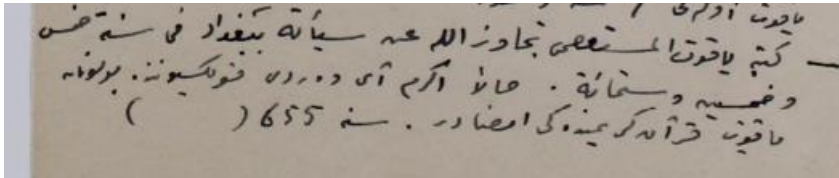 ياقوت
— كتبه ياقوت المستعصمى تجاوز الله عن سيأته ببغداد فى سنة خمس
وخمسين وستمائة . حالا اكرم آى قوللكسيوننده بولونان
ياقوت قرآن كريمنده كى امضادر . سنه 655 ( )